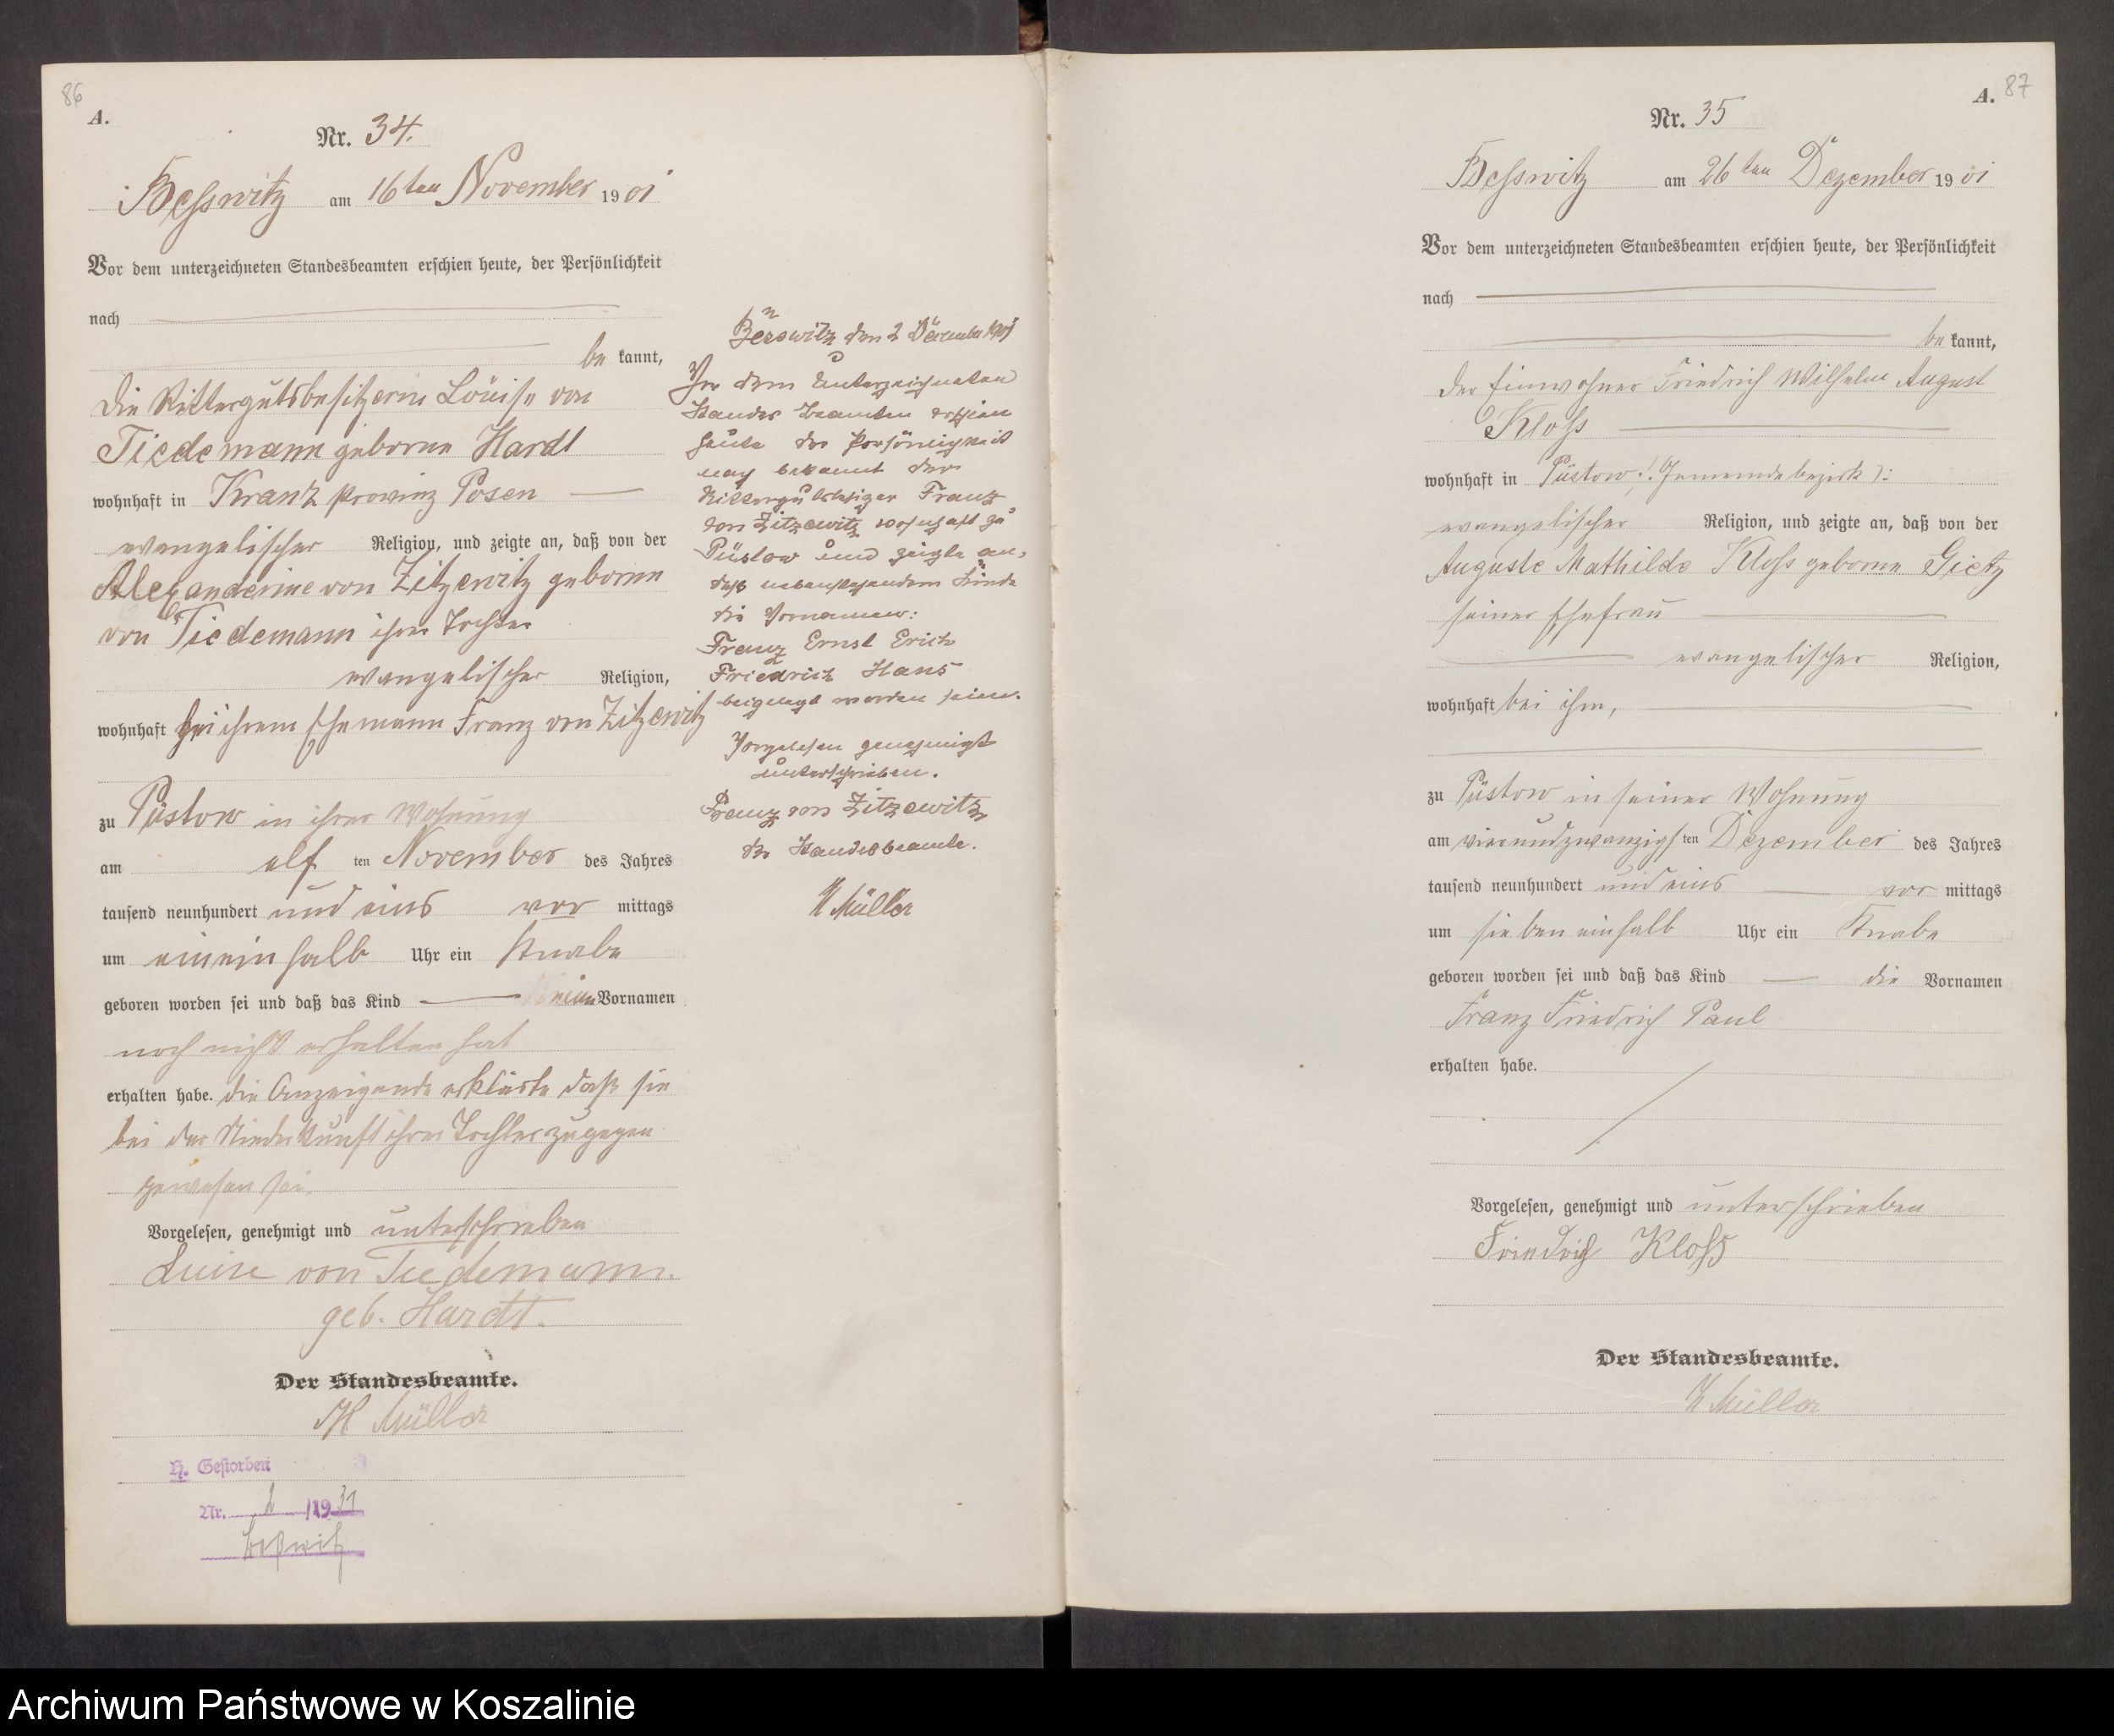 86
A.
Nr. 34.
Besswitz am 16ten November 1901
Vor dem unterzeichneten Standesbeamten erschien heute, der Persönlichkeit
nach
bekannt,
die Rittergutsbesitzerin Louise von
Tiedemann geborne Hardt
wohnhaft in Kranz Provinz Posen
evangelischer Religion, und zeigte an, daß von der
Alexanderine von Zitzewitz geborne
von Tiedemann ihrer Tochter
evangelischer Religion,
wohnhaft bei ihrem Ehemann Franz von Zitzewitz
zu Püstow in ihrer Wohnung
am elf ten November des Jahres
tausend neunhundert und eins vor mittags
um ein ein halb Uhr ein Knabe
geboren worden sei und daß das Kind einen Vornamen
noch nicht erhalten hat
erhalten habe. die Anzeigende erklärte daß sie
bei der Niederkunft ihrer Tochter zugegen
gewesen sei.
Vorgelesen, genehmigt und unterschrieben
Luise von Tiedemann.
geb. Hardt.
Der Standesbeamte.
H Müller
H. Gestorben
Nr. 2 /1931
Beßwitz
Besswitz den 2 Dezember 1901
Vor dem Unterzeichneten
Standes Beamten erschien
heute der Persönligkeit
nach bekannt der
Rittergutsbesizer Franz
von Zitzewitz wohnhaft zu
Püstow und zeigte an,
daß nebenstehendem Kinde
die Vornamen:
Franz Ernst Erich
Friedrich Hans
beigelegt worden seien.
Vorgelesen genehmigt
unterschrieben.
Franz von Zitzewitz
der Standesbeamte.
H Müller
A. 87
Nr. 35
Besswitz am 26ten Dezember 1901
Vor dem unterzeichneten Standesbeamten erschien heute, der Persönlichkeit
nach
bekannt,
der Einwohner Friedrich Wilhelm August
Kloss
wohnhaft in Püstow (: Gemeindebezirk ):
evangelischer Religion, und zeigte an, daß von der
Auguste Mathilde Kloss geborne Gietz
seiner Ehefrau
evangelischer Religion,
wohnhaft bei ihm,
zu Püstow in seiner Wohnung
am vierundzwanzigsten Dezember des Jahres
tausend neunhundert und eins vor mittags
um sieben einhalb Uhr ein Knabe
geboren worden sei und daß das Kind die Vornamen
Franz Friedrich Paul
erhalten habe.
Vorgelesen, genehmigt und unterschrieben
Friedrich Kloss
Der Standesbeamte.
H Müller
Archiwum Państwowe w Koszalinie